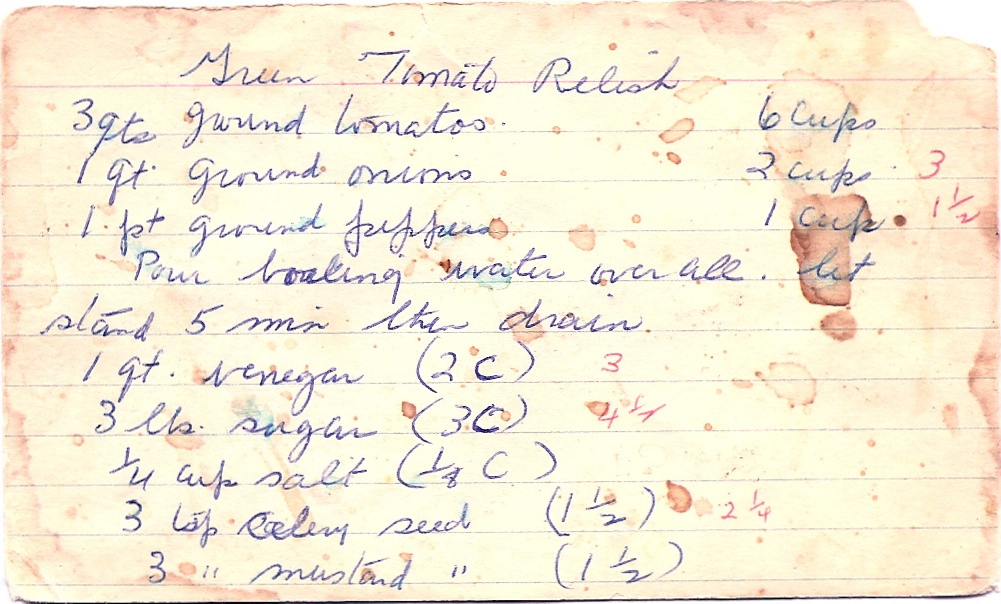 Green Tomato Relish
3 qts ground tomatos. 6 cups
1 qt. ground onions 2 cups 3
1 pt ground peppers 1 cup 1 1/2
Pour boaling water over all. let
stand 5 min then drain
1 qt. venegar (2 C) 3
3 lbs. sugar (3C) 4 1/2
1/4 cup salt (1/8 C)
3 tsp Celery seed (1 1/2) 2 1/4
3 " mustard " (1 1/2)